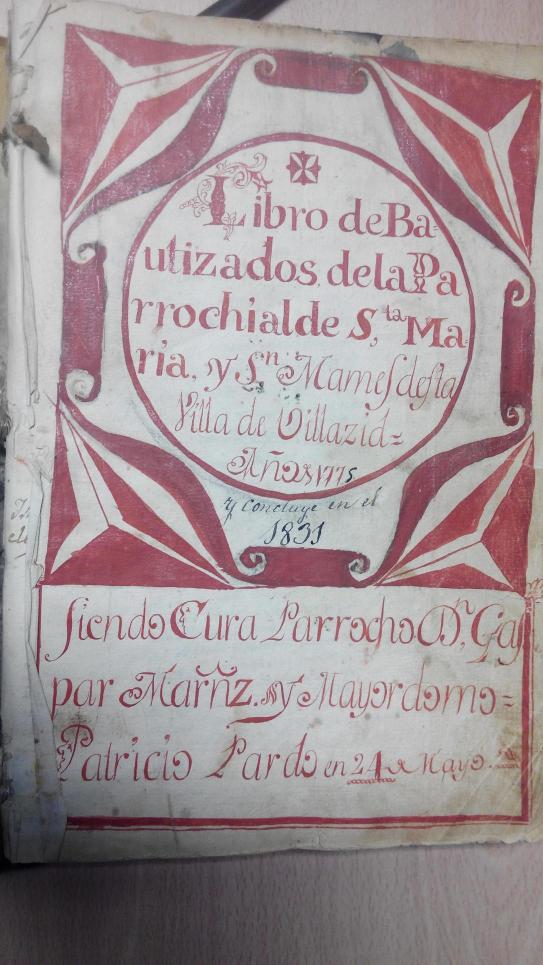 Libro de Ba-
utizados. de la Pa
rrochial de S,ta Ma-
ria. y Sn Mames desta
Villa de Villazid=
Años 1775
y Concluye en el
1831
siendo Cura Parrocho Dn, Gas
par Marñz. y Mayordomo=
Patricio Pardo en 24 de Mayo.